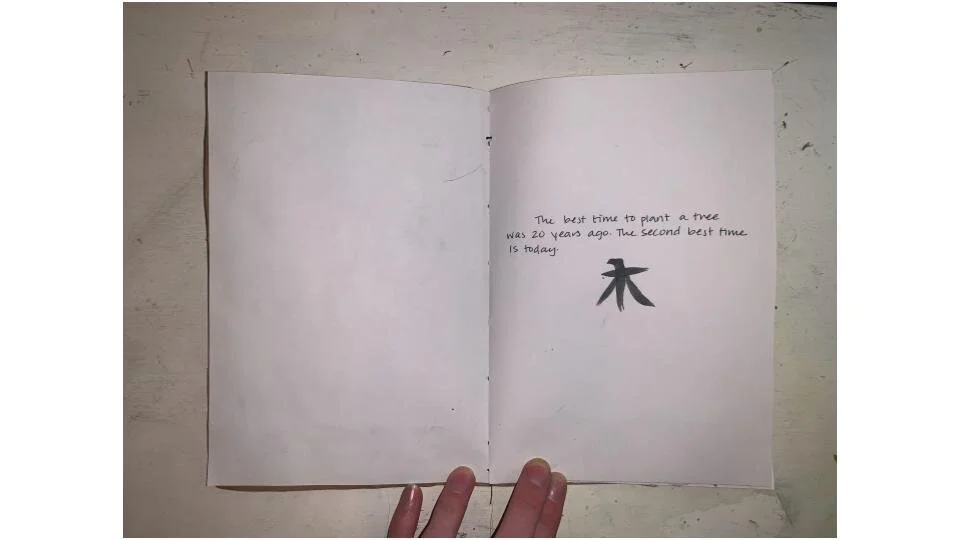 The best time to plant a tree
was 20 years ago. The second best time
is today.
木